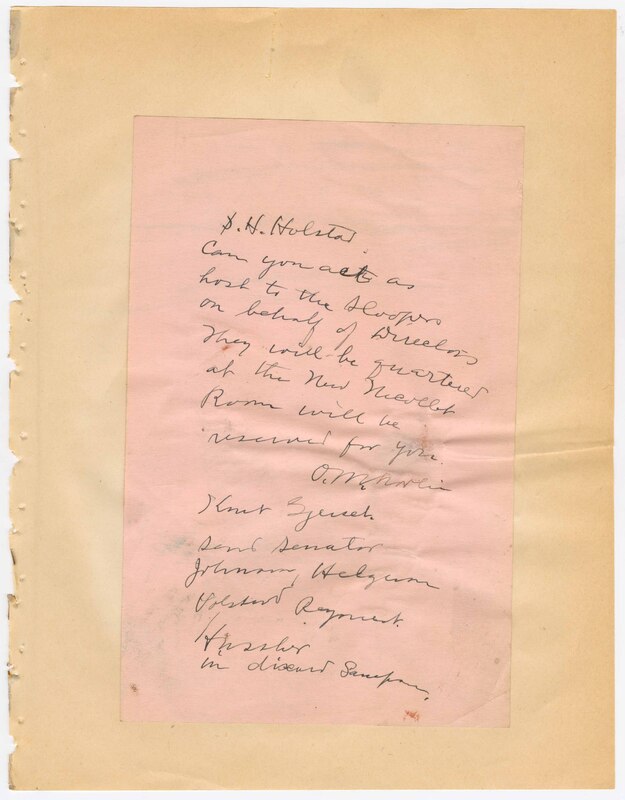 S. H. Holstad
Can you act as
host to the Sloopers
on behalf of Directors
They will be quartered
at the New Nicollet
Room will be
reserved for you.
O. M. Norlie
Knut Gjerset
send senator
Johnson, Helgeson
Volstad
in